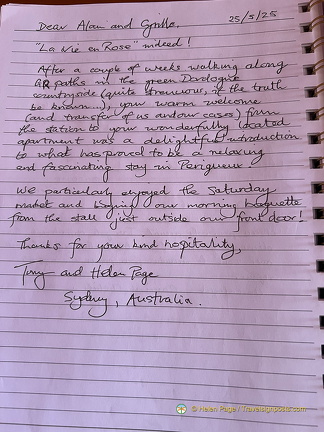 25/5/25
Dear Alan and
"La Vie en Rose" indeed!
After a couple of weeks walking along
GR paths in the green Dordogne
countryside (quite strenuous, if the truth
be known...), your warm welcome
(and transfer of us and our cases) from
the station to your wonderfully located
apartment was a delightful introduction
to what has proved to be a relaxing
and fascinating stay in Perigueux.
We particularly enjoyed the Saturday
market and buying our morning baguette
from the stall just outside our front door!
Thanks for your kind hospitality,
Tony and Helen Page
Sydney, Australia.
© Helen Page / Travelsignposts.com